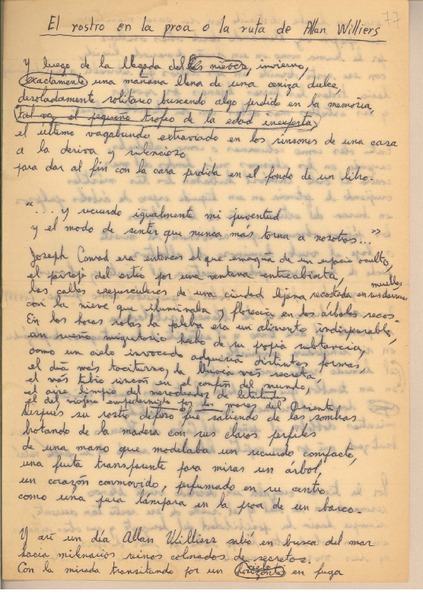 77
El rostro en la proa o la ruta de Allan Williers
Y luego de la llegada del las nieves, invierno,
exactamente, una mañana llena de una ceniza dulce,
desoladamente solitario buscando algo perdido en la memoria,
tal vez el pequeño trofeo de la edad inexperta,
el último vagabundo extraviado en los rincones de una casa
a la deriva y silencioso
para dar al fin con la cara perdida en el fondo de un libro.
"...y recuerdo igualmente mi juventud
y el modo de sentir que nunca más torna a nosotros..."
Joseph Conrad era entonces el que emergía de un espacio oculto,
el paisaje del estío por una ventana entreabierta,
las calles crepusculares de una ciudad lejana recostada en sus muelles
con la nieve que iluminaba y florecía en los árboles secos.
En las horas rotas la palabra era un alimento indispensable,
un sueño migratorio hecho de su propia substancia,
como un cielo invocado adquiría distintas formas,
el día más taciturno, la lluvia más secreta,
el más tibio rincón en el confín del mundo,
el aire limpio del
el del viajero en los mares del Oriente,
después su rostro detrás que saliendo de las sombras
brotando de la madera con sus claros perfiles
de una mano que modelaba un recuerdo compacto,
una fruta transparente para mirar un árbol,
un corazón conmovido, perfumado en su centro
como una pura lámpara en la proa de un barco.
Y así un día Allan Williers salió en busca del mar
hacia milenarios reinos colmados de secretos.
Con la mirada transitando por un en fuga